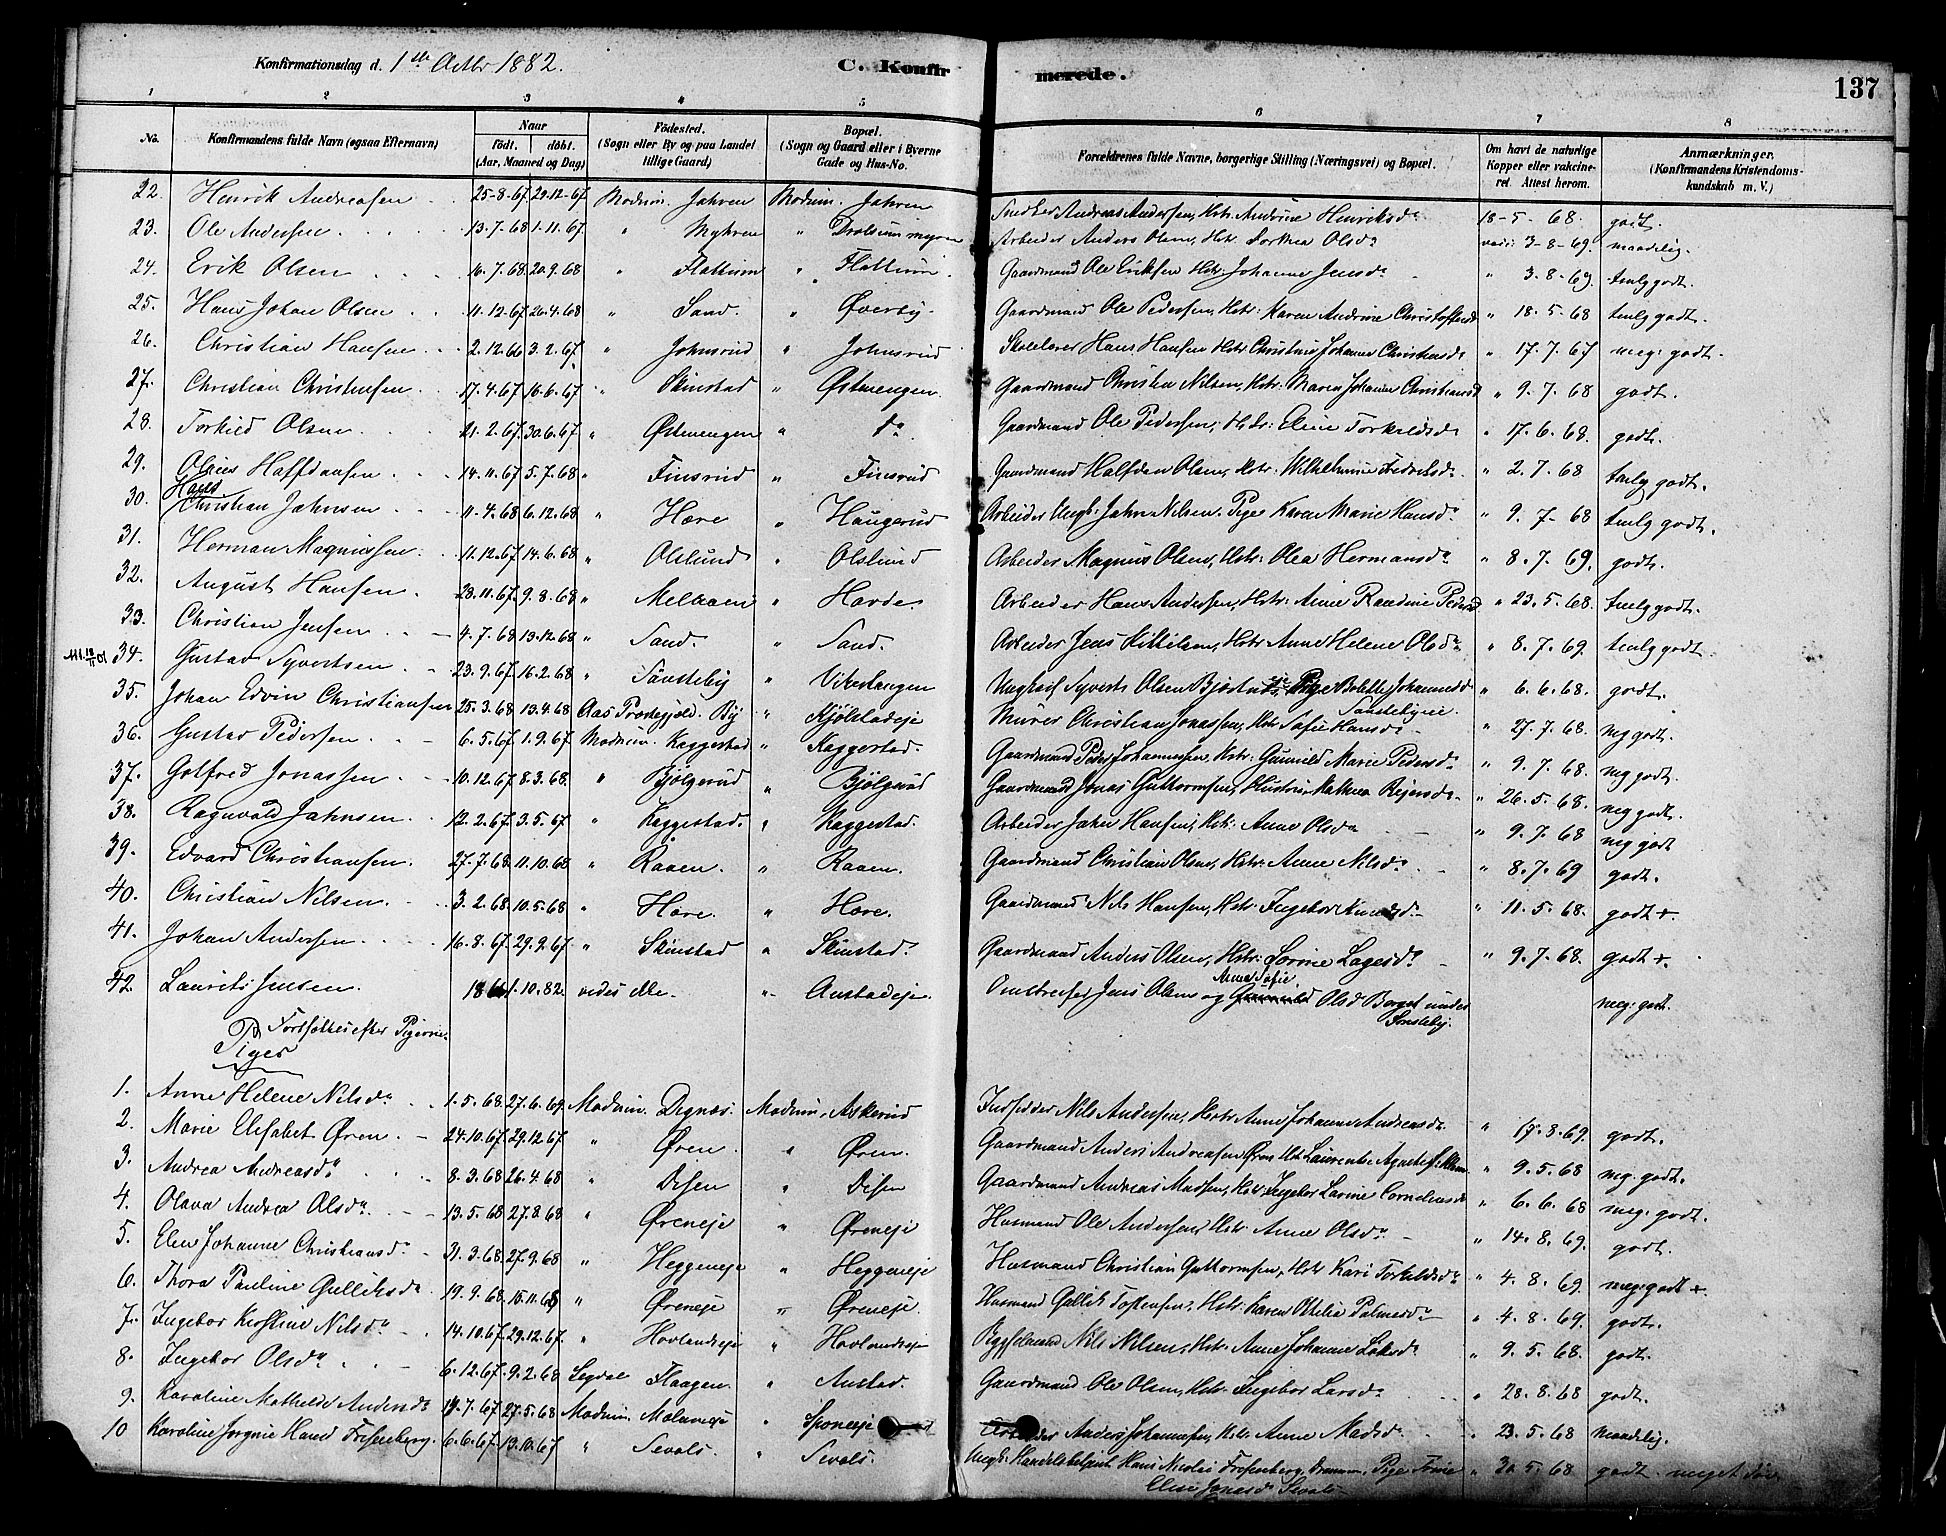 Konfirmationsdag d. 1ste Octbr 1882. C. Konfirmerede. 137
1 2 3 4 5 6 7 8
No. Konfirmandens fulde Navn (ogsaa Efternavn) Naar Födt. döbt. (Aar, Maaned og Dag) Födested. (Sogn eller By og paa Landet tillige Gaard) Bopæl. (Sogn og Gaard eller i Byerne Gade og Hus-No. Forældrenes fulde Navne, borgerlige Stilling (Næringsvei) og Bopæl. Om havt de naturlige Kopper eller vakcineret. Attest herom. Anmærkninger. (Konfirmandens Kristendomskundskab m. V.)
22. Henrik Andreasen 25-8-67. 29.12-67 Modum. Jahren Modum. Jahren Snedker Andreas Andersen, Hstr. Andrine Henriksdr 18-5-68. godt.
23. Ole Andersen 13.7.68 1.11.67. " Myhren " Drolsummyren Arbeider Anders Olsen, Hstr. Dorthea Olsdr 3-8-69. maadelig.
24. Erik Olsen 16.7.68. 20.9.68 " Flattum " Flattum. Gaardmand Ole Eriksen Hstr. Johanne Jensdr " 3.8-69. temlg godt.
25. Hans Johan Olsen 11.12-67 26.4.68 " Sand. " Øverby. Gaardmand Ole Pedersen, Hstr. Karen Andrine Christofersdr " 18.5-68 temlg godt.
26. Christian Hansen 2.12.66 3.2.67. " Johnsrud " Johnsrud Skolelærer Hans Hansen Hstr. Christine Johanne Christensdr " 17.7.67 meg. godt.
27. Christian Christensen 17.4.67 16.6.67. " Skinstad " Østmengen. Gaardmand Christen Nilsen, Hstr. Maren Johanne Christiansdr " 9.7.68 godt.
28. Torkild Olsen 21.2.67. 30.6.67. " Østmengen " do Gaardmand Ole Pedersen, Hstr: Eline Torkildsdr " 17.6.68. godt.
29. Olaus Halfdansen 14.11.67 5.7.68 " Finsrud " Finsrud Gaardmand Halfdan Olsen, Hstr. Wilhelmine Fredriksdr. " 2.7.68 temlg godt.
30. Hans Christian Jahnsen 11.4.68 6.12.68 " Hære " Haugerud Arbeider Ungk. Jahn Nilsen. Pige Karen Marie Hansdr " 9.7-68 temlg godt.
31. Herman Magnussen 11.12.67. 14.6.68 " Olslund " Olslund Arbeider Magnus Olsen, Hstr: Olea Hermansdr " 8.7.69. godt.
32. August Hansen. 23.11.67. 9.8.68 " Melaaen " Hovde Arbeider Hans Andersen, Hstr. Anne Randine Pedersd " 23.5.68. temlg godt.
33. Christian Jensen 4.7.68 13.12.68 " Sand. " Sand. Arbeider Jens Kittelsen, Hstr. Anne Helene Olsdr " 8.7.69. temlg godt.
34. Gustav Syvertsen 23.9.67. 16.2.68 " Sønsteby " Vikertangen Ungkarl Syvert Olsen Pige Bolette Johannesdr Sønstebyeie. " 6.6.68. godt.
35. Johan Edvin Christiansen 25.3.68 13.4.68 Aas Præstegjeld. By " Kjølstadeje Murer Christian Jonassen, Hstr Sofie Hansdr. " 27.7.68 mg godt.
36. Gustav Pedersen 6.5.67. 1.9.67. Modum. Kaggestad " Kaggestad. Gaardmand Peder Johannessen, Hstr. Gunnild Marie Pedersdr " 9.7.68. mg godt.
37. Gotfred Jonassen 10.12.67 8.3.68. " Bjølgerud " Bjølgerud Gaardmand Jonas Guttormsen, Hustru Mathea Reiersdr. " 26.5.68. mg godt.
38. Ragnvald Jahnsen. 12.2.67. 3.5.67. " Kaggestad. " Kaggestad. Arbeider Jahn Hansen, Hstr. Anne Olsdr " 9.7.68 mg godt
39. Edvard Christiansen. 27.7.68. 11.10.68 " Raaen. " Raaen. Gaardmand Christian Olsen, Hstr. Anne Nilsdr. " 8.7.69 godt.
40. Christian Nilsen. 3.2.68. 10.5.68 " Hære. " Hære. Gaardmand Nils Hansen, Hstr. Ingebor Knudsdr. " 11.5.68. godt +.
41. Johan Andersen. 16.8.67. 29.9.67 " Skinstad " Skinstad. Gaardmand Anders Olsen, Hstr. Lovine Lagesdr " 9.7.68. godt +.
42. Laurits Jensen. 1.10.82. " Anstadeje. Jens Olsen og Anne Sofie Olsd Berget under Sønsteby. meg. godt.
Fortsættes efter Pigerne.
Piger
1. Anne Helene Nilsdr 1.5.68. 27.6.69. Modum. Degnæs. Modum. Askerud Inderst Nils Andersen, Hstr. Anne Johanne Andreasdr " 17.8.69. godt.
2. Marie Elisabet Øren. 24.10.67. 29.12.67. " Øren. " Øren. Gaardmand Anders Andreasen Øren Hst. Laurentse Agnete " 9.5.68 mg. godt.
3. Andrea Andreasdr 8.3.68 26.4.68 " Disen " Disen Gaardmand Andreas Madsen, Hstr. Ingebor Lovine Corneliusdr " 6.6.68 meg. godt.
4. Olava Andrea Olsdr. 13.5.68 27.8.68 " Øreneje " Øreneje Husmand Ole Andersen, Hstr. Anne Olsdr " 14.8.69. godt.
5. Elen Johanne Christiansdr 31.3.68. 27.9.68 " Heggeneje " Heggeneje Husmand Christian Guttormsen, Hstr Kari Torkildsdr " 4.8.69. meg. godt +.
6. Thora Pauline Gulliksdr 19.9.68. 15.11.68 " Øreneje " Øreneje. Husmand Gullik Tostensen, Hstr. Karen Otilie Palmesdr " 4.8.69. godt.
7. Ingebor Kirstine Nilsdr 14.10.67. 29.12.67. " Hovlandseje " Hovlandseje Nils Nilsen, Hstr. Anne Johanne " 9.5.68. godt.
8. Ingebor Olsdr 6.12.67. 9.2.68 Sigdal Haagen. " Anstad. Gaardmand Ole Olsen, Hstr. Ingebor Larsdr " 28.8.68 godt.
9. Karoline Mathilde Andersdr 19.7.67 27.5.68 Modum. " Sponeje Arbeider Anders Johannesen, Hstr. Anne Madsdr. " 23.5.68 maadelig.
10 Karoline Jørgine Hansd Fresenberg. 6.6.67. 13.10.67 " Sevals. " Sevals. Ungk. Handelsbetjent Hans Nicolai Fresenberg, Drammen, Pige Trine Eline Jonasdr Sevals " 30.5.68 godt. meget